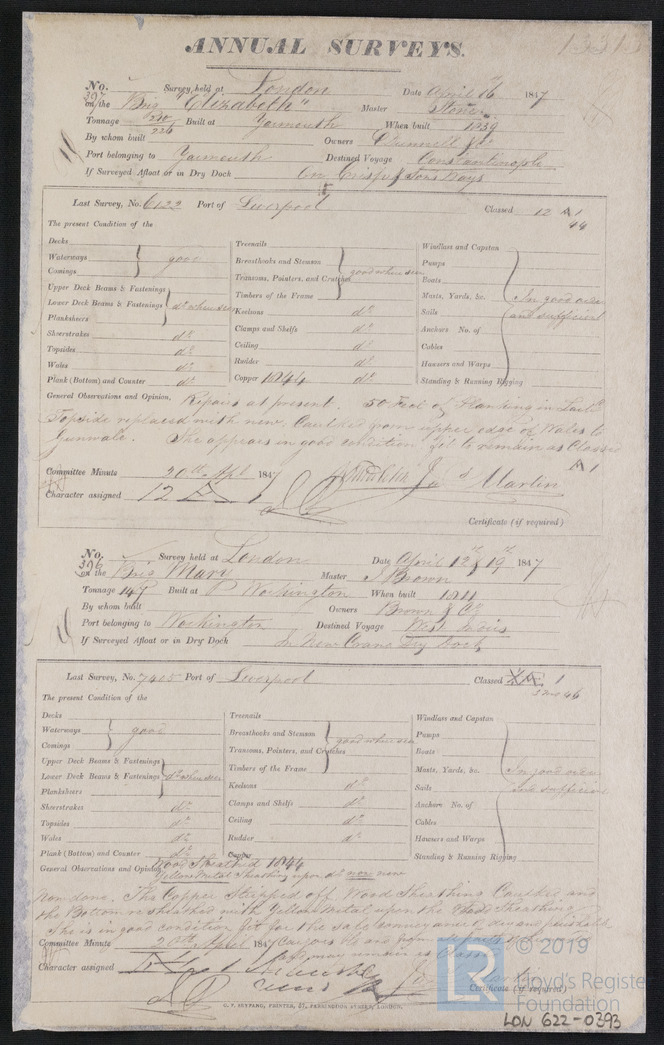 ANNUAL SURVEYS.
No. 397 Survey held at London Date April 16 1847
on the Brig "Elizabeth" Master Stoner
Tonnage 220 226 Built at Yarmouth When built 1839
By whom built Owners
Port belonging to Yarmouth Destined Voyage Constantinople
If Surveyed Afloat or in Dry Dock On
Last Survey, No. 6122 Port of Liverpool Classed 12 A 1
44
The present Condition of the
Decks
Waterways
Comings
good
Upper Deck Beams & Fastenings
Lower Deck Beams & Fastenings
Planksheers
do when seen
Sheerstrakes do
Topsides do
Wales do
Plank (Bottom) and Counter do
Treenails
Breasthooks and Stemson
Transoms, Pointers, and Crutches
Timbers of the Frame
good when seen
Keelsons do
Clamps and Shelfs do
Ceiling do
Rudder do
Copper 1844 do
Windlass and Capstan
Pumps
Boats
Masts, Yards, &c.
Sails
Anchors No. of
Cables
Hawsers and Warps
Standing & Running Rigging
In good order
and sufficient
General Observations and Opinion, Repairs at present. 50 Feet of Planking in
Topside replaced with new, Caulked from upper edge of Wales to
Gunwale. She appears in good condition, fit to remain as Classed
A 1
Committee Minute 20th Apl 1847
Martin
Character assigned 12 A 1
Certificate (if required)
No. 396 Survey held at London Date April 12th & 19th 1847
on the Brig Mary Master J Brown
Tonnage 147 Built at Workington When built
By whom built Owners Brown & Co
Port belonging to Workington Destined Voyage West Indies
If Surveyed Afloat or in Dry Dock In New Crane Dry Dock
Last Survey, No. 7405 Port of Liverpool Classed 1
46
The present Condition of the
Decks
Waterways
Comings
good
Upper Deck Beams & Fastenings
Lower Deck Beams & Fastenings
Planksheers
do when seen
Sheerstrakes do
Topsides do
Wales do
Plank (Bottom) and Counter do
Treenails
Breasthooks and Stemson
Transoms, Pointers, and Crutches
Timbers of the Frame
good when seen
Keelsons do
Clamps and Shelfs do
Ceiling do
Rudder do
Copper
Windlass and Capstan
Pumps
Boats
Masts, Yards, &c.
Sails
Anchors No. of
Cables
Hawsers and Warps
Standing & Running Rigging
In good order
and sufficient
General Observations and Opinion, Wood Sheathed 1844
Yellow Metal Sheathing upon do now new
Now done. The Copper stripped off, Wood Sheathing Caulked and
the Bottom resheathed with Yellow Metal upon the Wood Sheathing
She is in good condition fit for the safe conveyance of dry and perishable
Committee Minute 20th April 1847 Cargoes to and from
and may remain as Classed
Character assigned
Certificate (if required)
C. F. SEYFANG, PRINTER, 57, FARRINGDON STREET, LONDON.
LR
© 2019
Lloyd's Register
Foundation
LON 622-0393